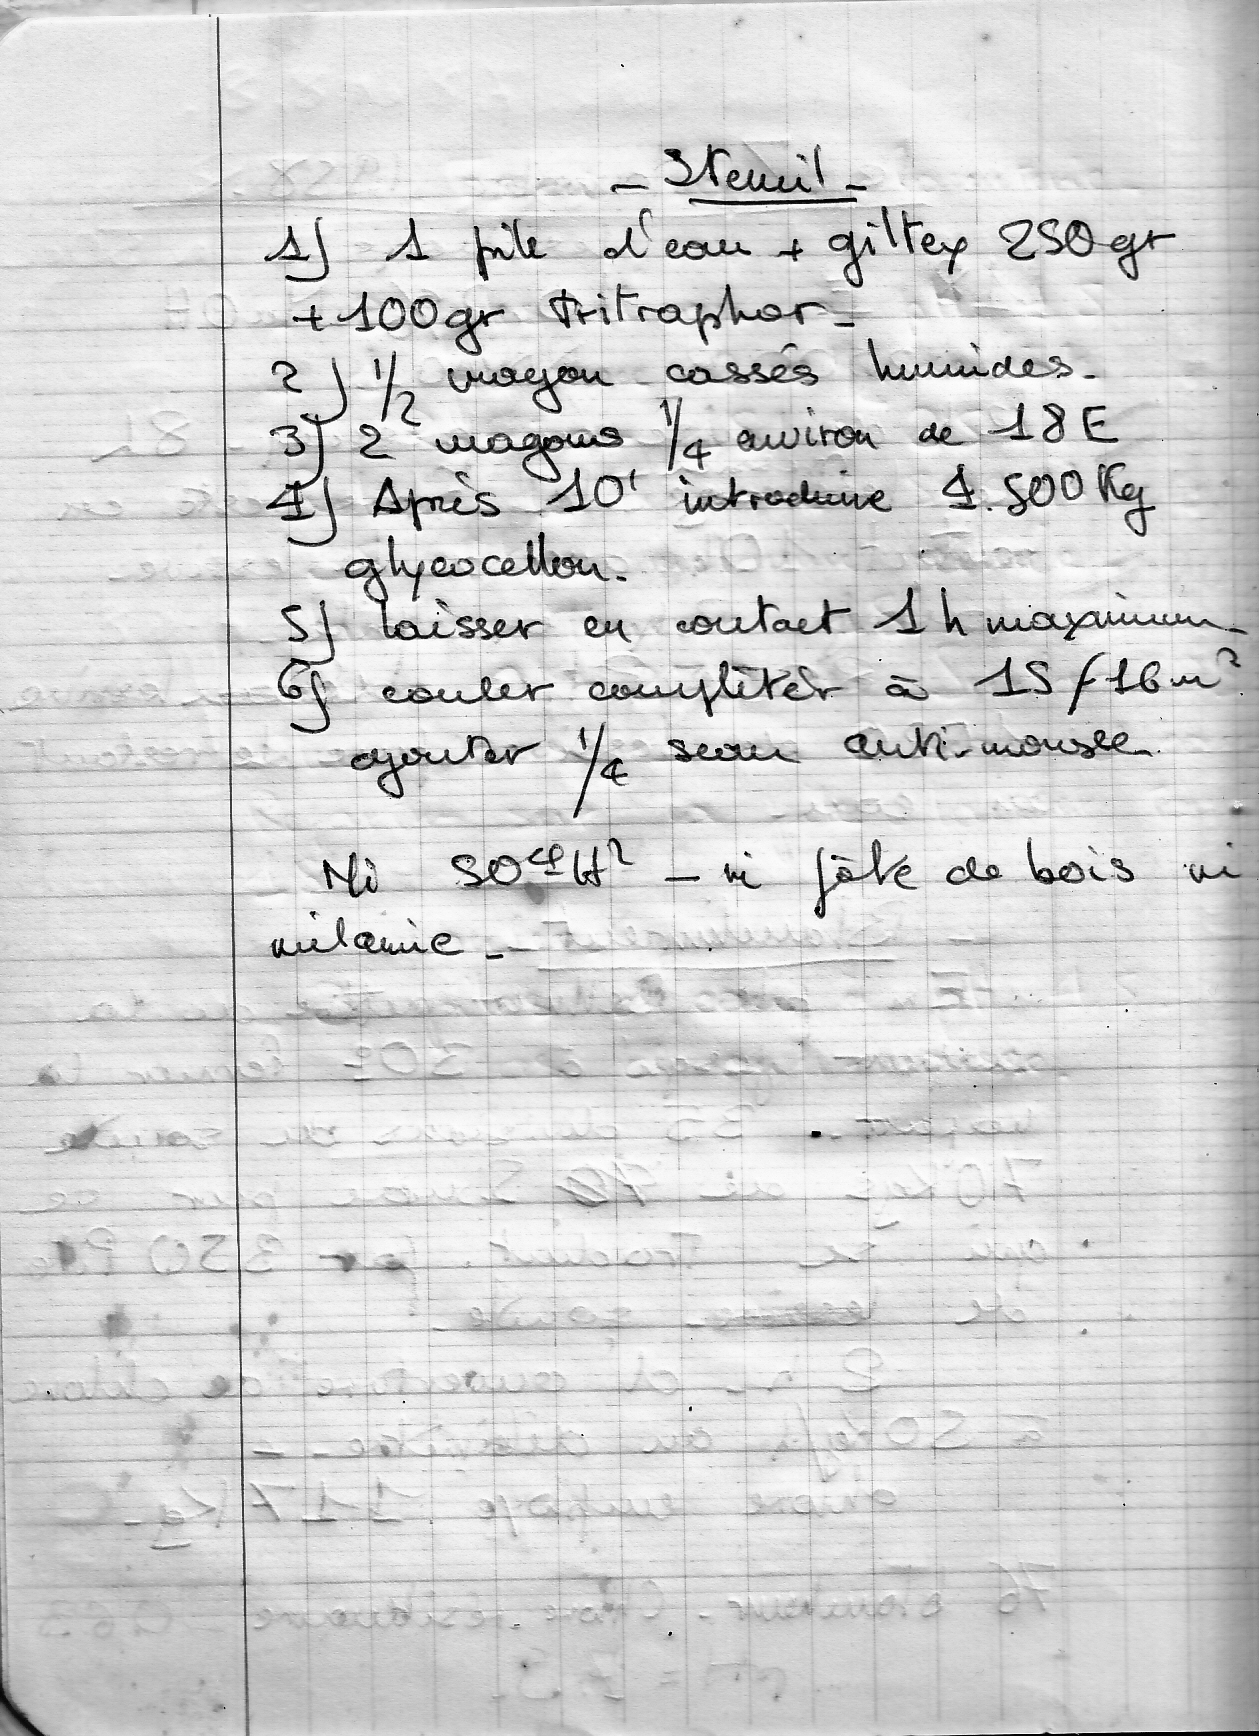 - Stencil -
1) 1 pile d'eau + giltex 250 gr
+ 100 gr tritraphor -
2) 1/2 wagon cassés humides -
3) 2 wagons 1/4 environ de 18 E
4) Après 10' introduire 1.500 Kg
glycocellon.
5) laisser en contact 1 h maximum -
6) couler compléter à 15/16 m3
ajouter 1/4 seau anti-mousse.
Ni SO4H2 - ni pâte de bois ni
mélamie -